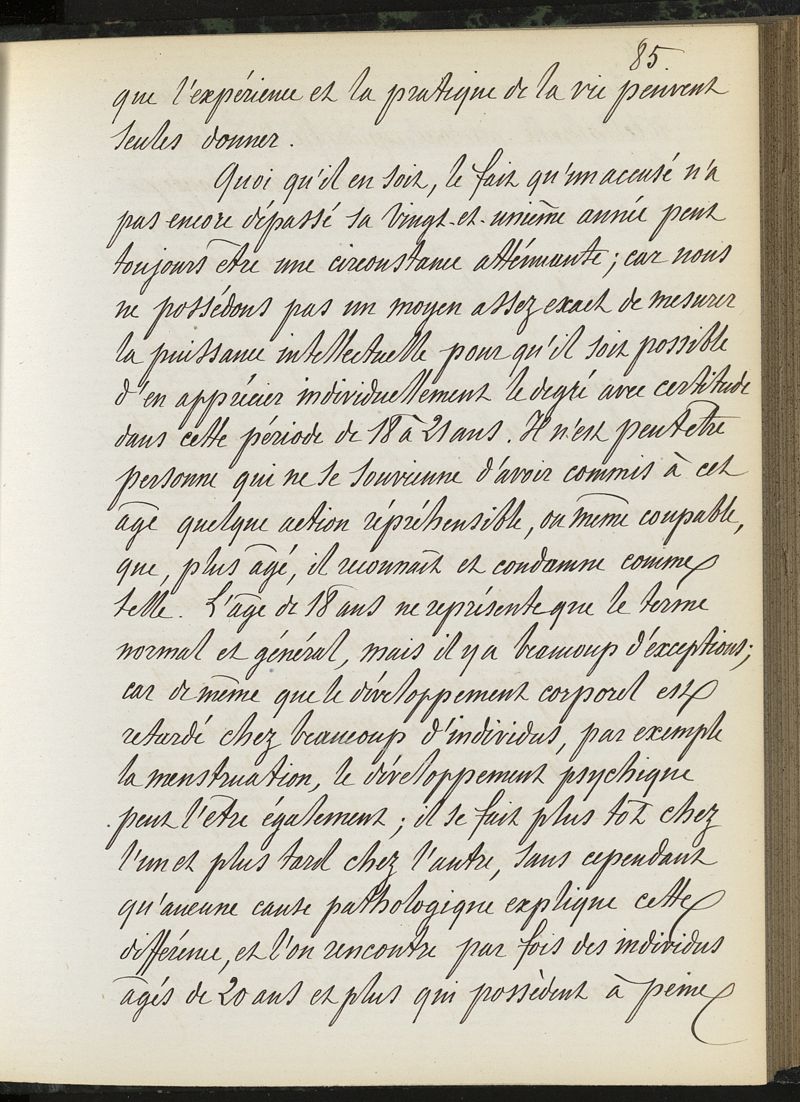 85
que l'expérience et la pratique de la vie peuvent
seules donner.
Quoi qu'il en soit, le fait qu'un accusé n'a
pas encore dépassé sa vingt-et-unième année peut
toujours être une circonstance atténuante; car nous
ne possédons pas un moyen assez exact de mesurer
la puissance intellectuelle pour qu'il soit possible
d'en apprécier individuellement le degré avec certitude
dans cette période de 18 à 21 ans. Il n'est peut être
personne qui ne se souvienne d'avoir commis à cet
âge quelque action répréhensible, ou même coupable,
que, plus âgé, il reconnaît et condamne comme
telle. L'âge de 18 ans ne représente que le terme
normal et général, mais il y a beaucoup d'exceptions;
car de même que le développement corporel est
retardé chez beaucoup d'individus, par exemple
la menstruation, le développement psychique
peut l'être également; il se fait plus tôt chez
l'un et plus tard chez l'autre, sans cependant
qu'aucune cause pathologique explique cette
différence, et l'on rencontre par fois des individus
âgés de 20 ans et plus qui possèdent à peine